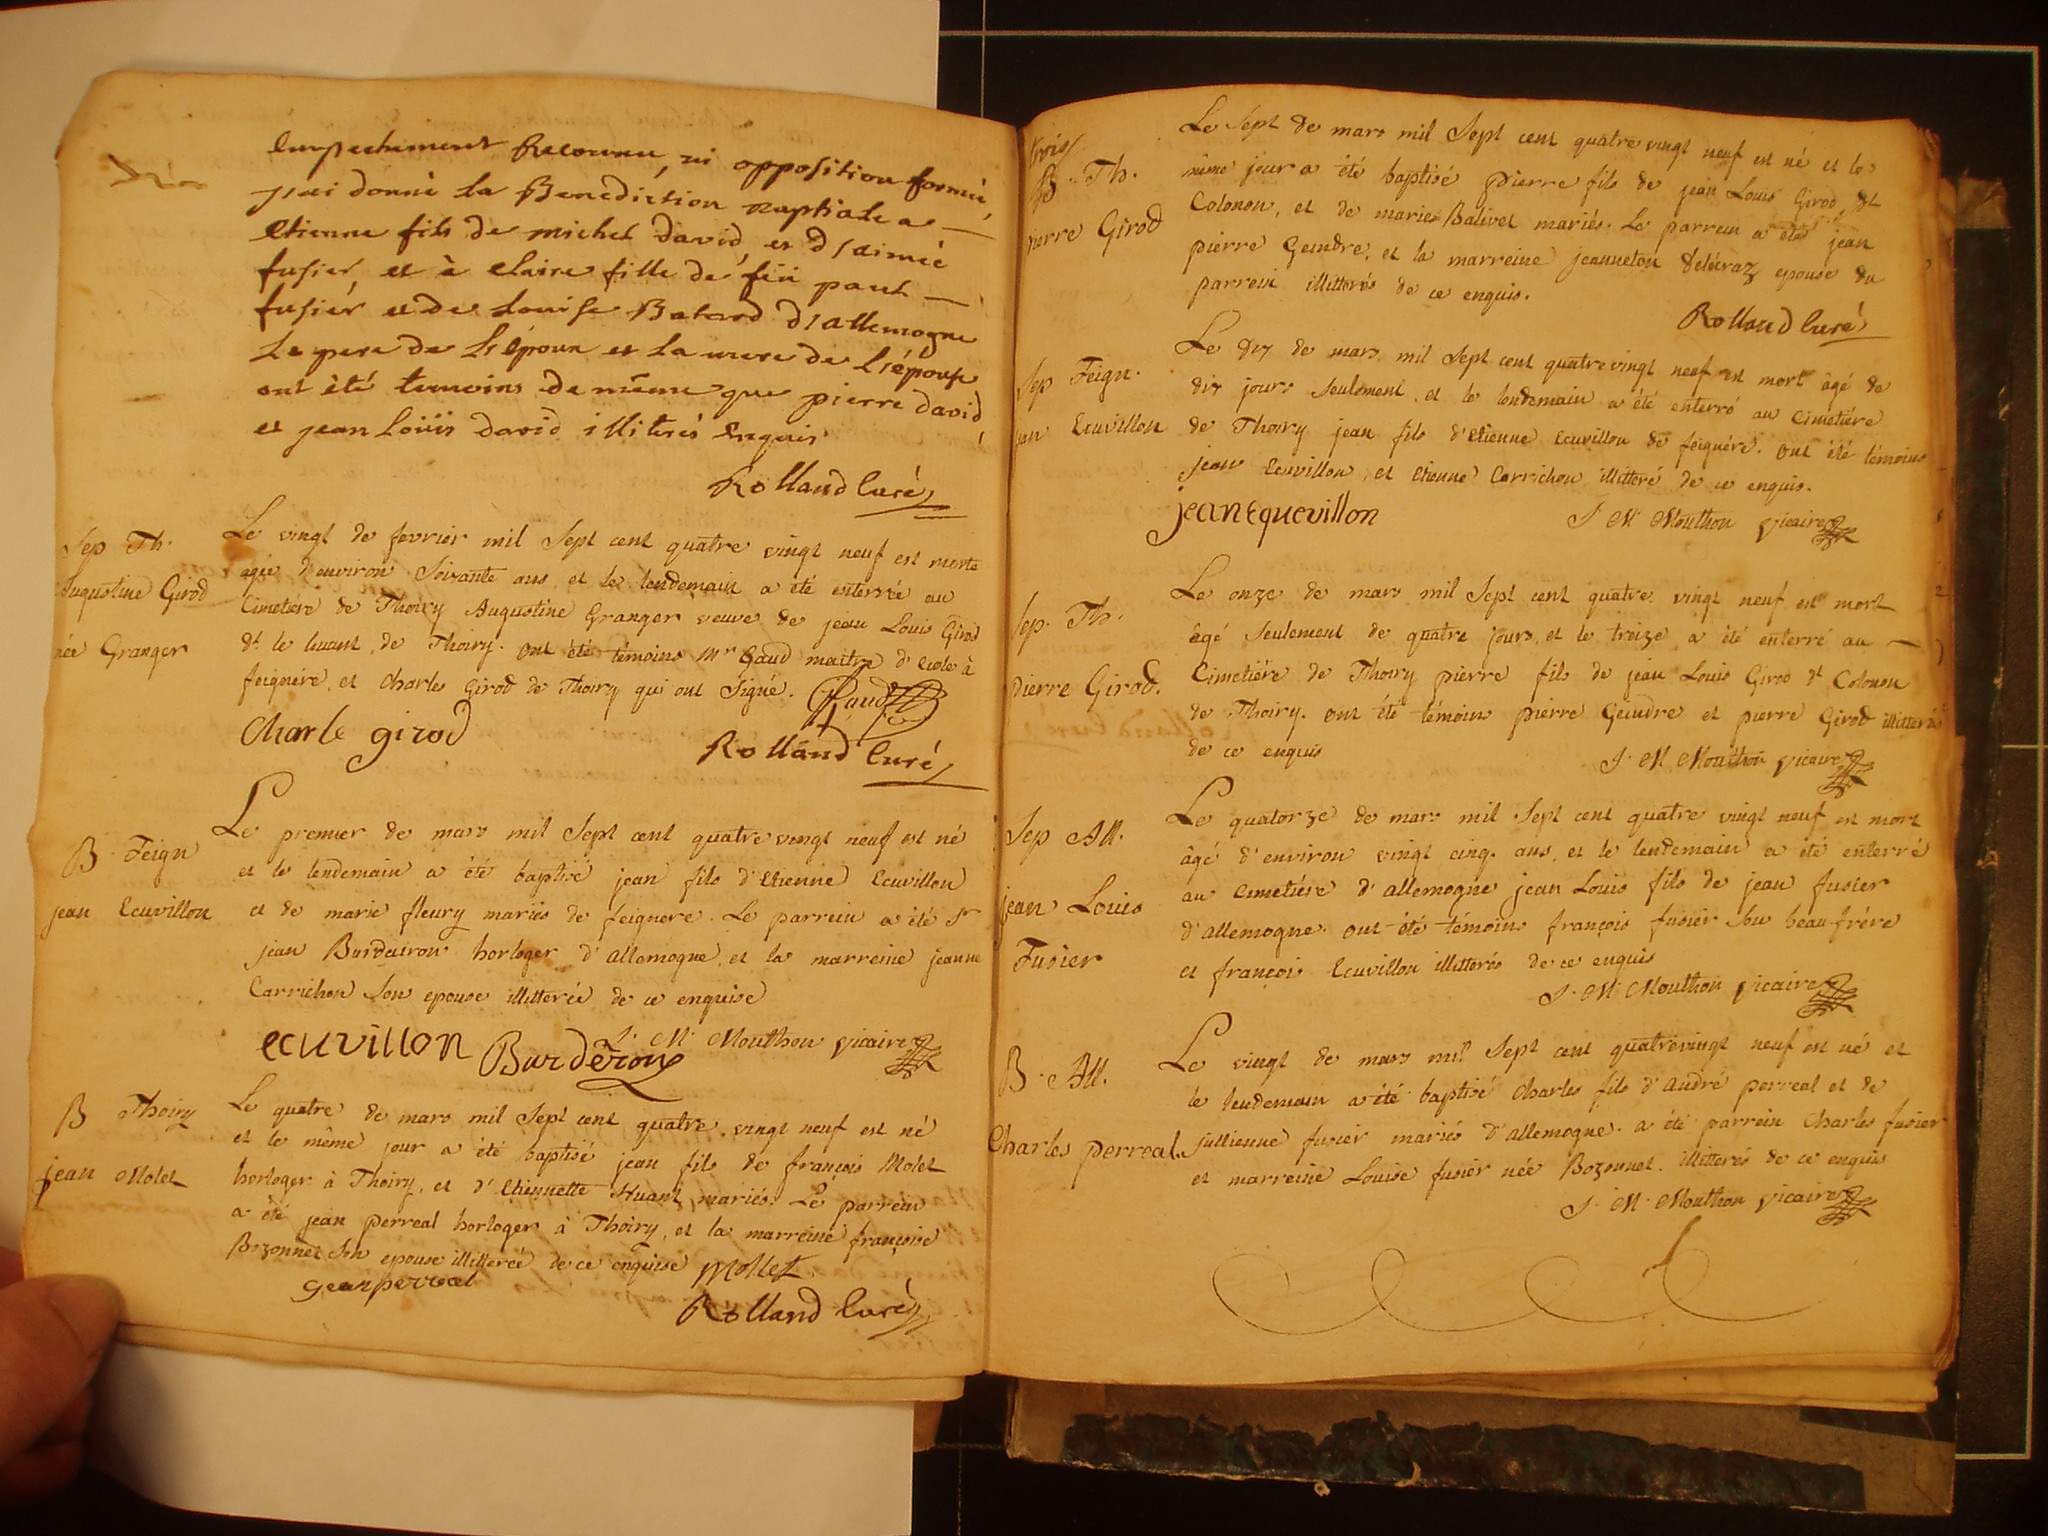 Empechement Reconnu, ni opposition formée,
j'ai donné la Benediction nuptiale a
Etienne fils de michel David, et d'aimée
fusier, et à claire fille de feü paul
fusier et de Louise Batard d'allemogne
Le pere de L'époux et la mere de L'épouse
ont été temoins de même que pierre david,
et jean Loüis david illiterés Enquis
Rolland Curé
Sep Th.
Augustine Girod
née Granger
Le vingt de fevrier mil Sept cent quatre vingt neuf est morte
agée d'environ Soixante ans, et le lendemain a été enterrée au
Cimetiére de Thoiry Augustine Granger veuve de jean Louis Girod
dt le luant, de Thoiry. ont été témoins Mr Gaud maitre d'ecole à
feigniére, et Charles Girod de Thoiry qui ont signé. Gaud
Charle girod
Rolland Curé
B. Feign
jean Ecuvillon
Le premier de mars mil Sept cent quatre vingt neuf est né
et le lendemain a été baptisé jean fils d'Etienne Ecuvillon
et de marie fleury mariés de feignere. Le parrein a été Sr
jean Burdairon horloger d'allemogne, et la marreine jeanne
Carrichon Son epouse illitterée de ce enquise
ecuvillon Burdéron J. M. Mouthon vicaire
B Thoiry
jean Molet
Le quatre de mars mil Sept cent quatre vingt neuf est né
et le même jour a été baptisé jean fils de françois Molet
horloger à Thoiry, et d'Etiennette Huant mariés. Le parrein
a été jean perreal horloger à Thoiry, et la marreine françoise
Bozonnet Son epouse illitterée de ce enquise Mollet
jean perreal
Rolland Curé
trois
B. Th.
pierre Girod
Le Sept de mars mil Sept cent quatre vingt neuf est né et le
même jour a été baptisé pierre fils de jean Louis Girod dt
Colonon, et de marie Balivet mariés. Le parrein a été jean
pierre Geindre, et la marreine jeanneton Delécraz epouse du
parrein illitterés de ce enquis.
Rolland Curé
Sep Feign.
jean Ecuvillon
Le dix de mars mil Sept cent quatre vingt neuf est mort âgé de
dix jours Seulement, et le lendemain a été enterré au Cimetiére
de Thoiry jean fils d'Etienne Ecuvillon de feignére. ont été témoins
jean Ecuvillon, et Etienne Carrichon illitteré de ce enquis.
jean Equevillon J. M. Mouthon vicaire
Sep. Th.
pierre Girod.
Le onze de mars mil Sept cent quatre vingt neuf est mort
âgé Seulement de quatre jours, et le treize a été enterré au
Cimetiére de Thoiry pierre fils de jean Louis Girod dt Colonon
de Thoiry. ont été témoins pierre Geindre et pierre Girod illitterés
de ce enquis J. M. Mouthon vicaire
Sep All.
jean Louis
Fusier
Le quatorze de mars mil Sept cent quatre vingt neuf est mort
âgé d'environ vingt cinq ans, et le lendemain a été enterré
au Cimetiére d'allemogne jean Louis fils de jean fusier
d'allemogne. ont été témoins françois fusier Son beau-frére
et françois Ecuvillon illitterés de ce enquis
J. M. Mouthon vicaire
B. All.
Charles perreal.
Le vingt de mars mil Sept cent quatrevingt neuf est né et
le lendemain a été baptisé Charles fils d'andré perreal et de
jullienne fusier mariés d'allemogne. a été parrein Charles fusier
et marreine Louise fusier née Bozonnet. illitterés de ce enquis
J. M. Mouthon vicaire